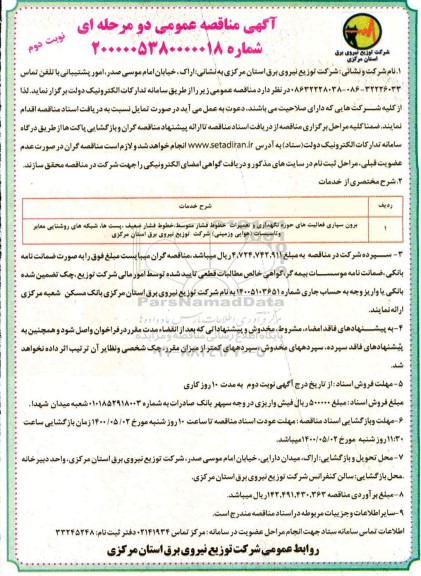 آگهی مناقصه عمومی دو مرحله ای
شماره ۲۰۰۰۰۰۵۳۸۰۰۰۰۰۱۸
نوبت دوم
شرکت توزیع نیروی برق
استان مرکزی
۱.نام شرکت و نشانی: شرکت توزیع نیروی برق استان مرکزی به نشانی: اراک، خیابان امام موسی صدر، امور پشتیبانی با تلفن تماس
۳۲۲۲۶۰۳۳-۰۸۶ ۰۸۶۳۲۲۲۸۰۳۸- در نظر دارد مناقصه عمومی زیر را از طریق سامانه تدارکات الکترونیک دولت برگزار نماید. لذا
از کلیه شرکت هایی که دارای صلاحیت می باشند، دعوت به عمل می آید در صورت تمایل نسبت به دریافت اسناد مناقصه اقدام
نمایند. ضمنا کلیه مراحل برگزاری مناقصه از دریافت اسناد مناقصه تا ارائه پیشنهاد مناقصه گران و بازگشایی پاکت ها از طریق درگاه
سامانه تدارکات الکترونیک دولت (ستاد) به آدرس www.setadiran.ir انجام خواهد شد و لازم است مناقصه گران در صورت عدم
عضویت قبلی، مراحل ثبت نام در سایت های مذکور و دریافت گواهی امضای الکترونیکی را جهت شرکت در مناقصه محقق سازند.
۲.شرح مختصری از خدمات
ردیف شرح خدمات
۱ برون سپاری فعالیت های حوزه نگهداری و تعمیرات خطوط فشار متوسط،خطوط فشار ضعیف ،پست ها، شبکه های روشنایی معابر
وتاسیسات (هوایی وزمینی) شرکت توزیع نیروی برق استان مرکزی
۳- سپرده شرکت در مناقصه به مبلغ ۴,۷۲۴,۷۴۲,۹۱۱ ریال میباشد.مناقصه گران میبایست مبلغ فوق را به صورت ضمانت نامه
بانکی،ضمانت نامه موسسات بیمه گر،گواهی خالص مطالبات قطعی تایید شده توسط امور مالی شرکت توزیع، چک تضمین شده
بانکی یا واریز وجه به حساب جاری شماره ۱۴۰۰۵۱۰۳۶۵۱ به نام شرکت توزیع نیروی برق استان مرکزی بانک مسکن شعبه مرکزی
ارائه نمایند.
ParsNamadData
۴-به پیشنهادهای فاقد امضاء، مشروط، مخدوش و پیشنهاداتی که بعد از انقضاء مدت مقرر در فراخوان واصل شود و همچنین به
پیشنهادهای فاقد سپرده، سپرده‌های مخدوش، سپرده‌های کمتر از میزان مقرر، چک شخصی ونظایر آن ترتیب اثر داده نخواهد
شد.
۵- مهلت فروش اسناد : از تاریخ درج آگهی نوبت دوم به مدت ۱۰ روز کاری
مبلغ فروش اسناد : مبلغ ۵۰۰۰۰۰ ریال فیش واریزی در وجه سپهر بانک صادرات به شماره ۰۱۰۱۸۵۲۹۱۸۰۰۳ شعبه میدان شهدا.
۶-مهلت وبازگشایی اسناد مناقصه : مهلت عودت اسناد مناقصه تا ساعت ۱۰ روز شنبه مورخ ۱۴۰۰/۰۵/۰۲ زمان بازگشایی ساعت
۱۱:۳۰ روز شنبه مورخ ۱۴۰۰/۰۵/۰۲ میباشد.
۷- محل تحویل و بازگشایی: اراک، میدان دارایی، خیابان امام موسی صدر، شرکت توزیع نیروی برق استان مرکزی، واحد دبیرخانه
.محل بازگشایی: سالن کنفرانس شرکت توزیع نیروی برق استان مرکزی.
۸-مبلغ برآوردی مناقصه ۱۴۲,۴۹۱,۴۳۰,۳۶۳ ریال میباشد.
۹-سایر اطلاعات و جزییات مربوطه در اسناد مناقصه مندرج است.
اطلاعات تماس سامانه ستاد جهت انجام مراحل عضویت در سامانه : مرکز تماس ۰۲۱۴۱۹۳۴ دفتر ثبت نام : ۳۳۲۴۵۲۴۸
روابط عمومی شرکت توزیع نیروی برق استان مرکزی